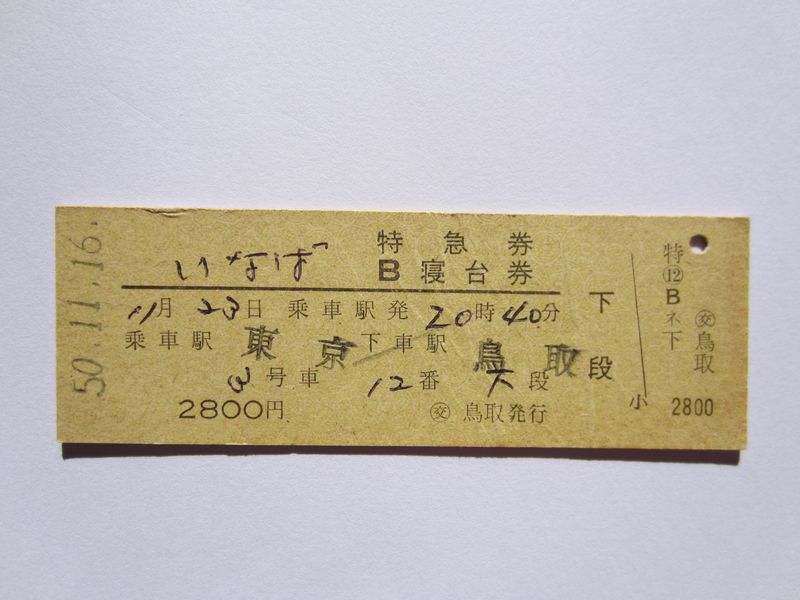 50.11.16.
いなば 特急券
B寝台券
11月23日 乗車駅発 20時40分
乗車駅 東京 下車駅 鳥取
3号車 12番 下段
2800円 ㊋交 鳥取発行
下段
小
特⑫Bネ下
交鳥取
2800